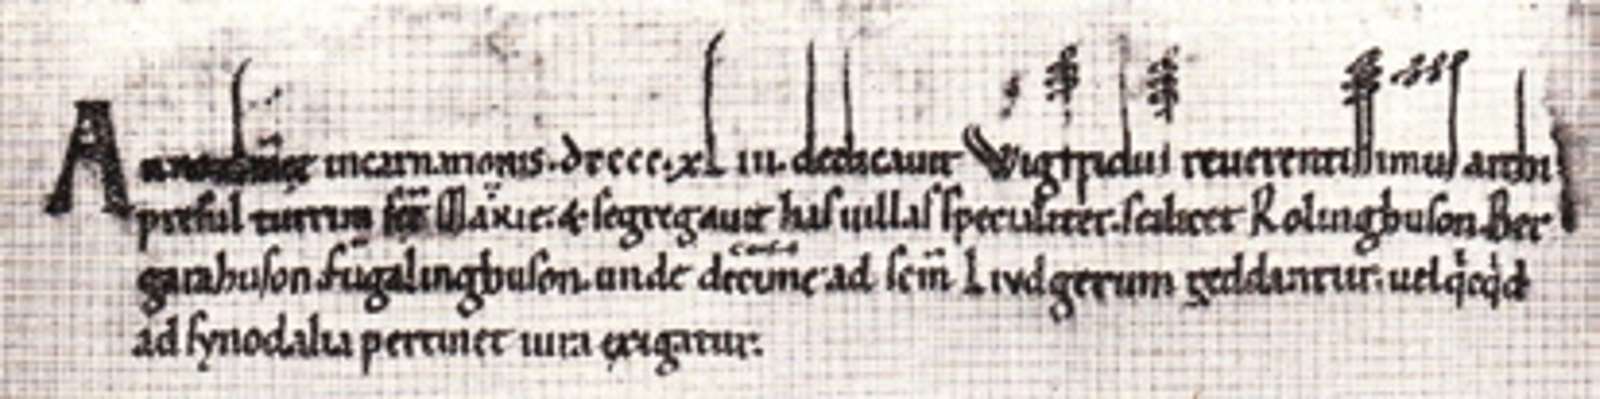 Anno dominicę incarnationis. dcccc. xL iii. dedicauit Wigfridus reuerentissimus archi
presul turrim scę Marie. & segregauit has uillas specialiter. scilicet Rolinghuson. Ber
garahuson. Fugalinghuson. unde decimę ad scm̄ Liudgerum reddantur. uel qicqid
ad synodalia pertinet iura exigatur.